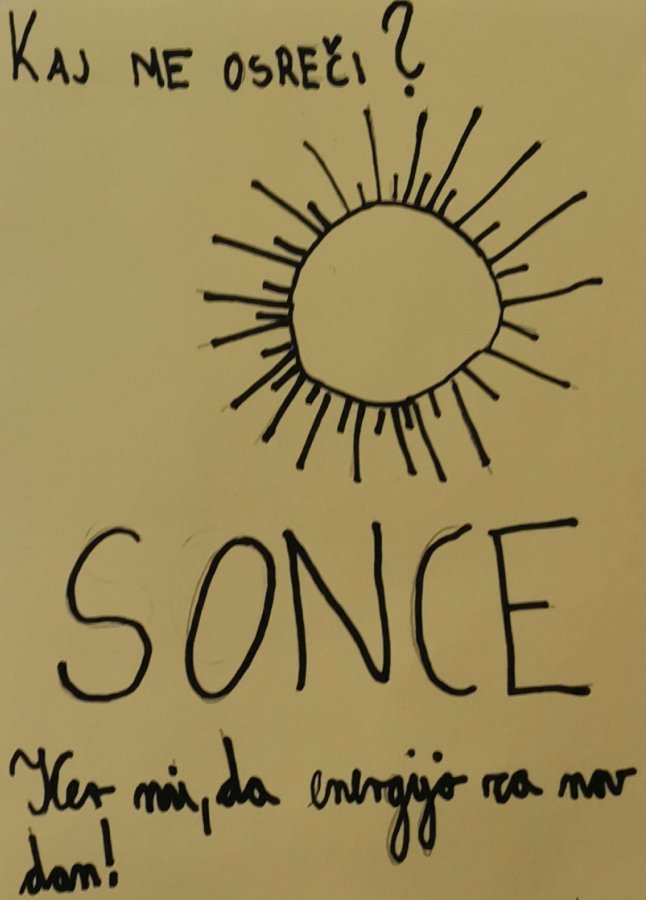 KAJ ME OSREČI?
SONCE
Ker mi, da energijo za nov
dan!